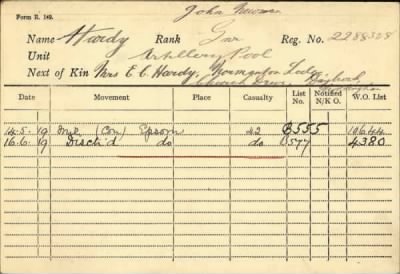 Form R. 149.
John Newman
Name Hardy Rank Gnr Reg. No. 2288328
Unit Artillery Pool
Next of Kin Mrs E. C. Hardy, Normanton Lodge
Church Drive Daybrook
Date Movement Place Casualty List No. Notified N/K O. W.O. List
14.5.19 (Con) Epsom 42 B555 10644
16.6.19 Disch'd do do B577 4380